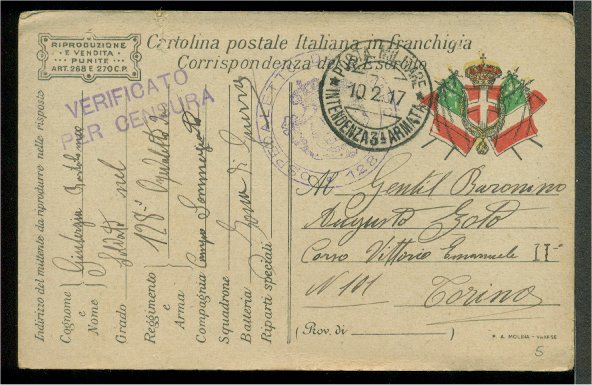 RIPRODUZIONE
E VENDITA
PUNITE
ART. 268 E 270 C.P.
Cartolina postale Italiana in franchigia
Corrispondenza del R. Esercito
VERIFICATO
PER CENSURA
POSTA MILITARE
10.2.17
INTENDENZA 3ª ARMATA
128
Al Gentil Baronino
Augusto
Corso Vittorio Emanuele II°
N 101
Torino
(Prov. di )
P. A. MOLINA - VARESE
5
Indirizzo del mittente da riprodurre nelle risposte
Cognome
e
Nome
Grado Soldato nel
Reggimento 128°
e
Arma
Compagnia Campo
Squadrone
Batteria Zona di Guerra
Riparti speciali